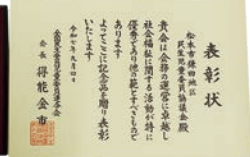 表彰状
松本市鎌田地区
民生児童委員協議会殿
貴会は会務の運営に卓越し
社会福祉に関する活動が特に
優秀であり他の範とすべきもので
あります
よってここに記念品を贈り表彰
いたします
令和七年九月四日
会長 得能金市